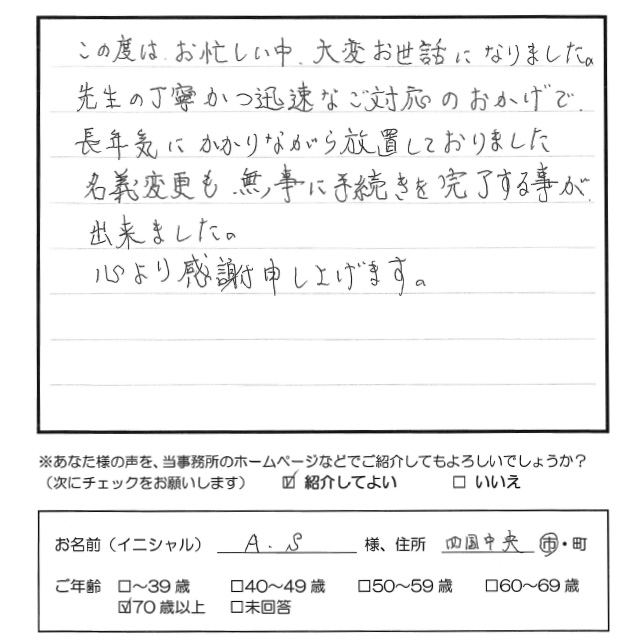 この度は、お忙しい中、大変お世話になりました。
先生の丁寧かつ迅速なご対応のおかげで、
長年気にかかりながら放置しておりました
名義変更も無事に手続きを完了する事が、
出来ました。
心より感謝申し上げます。
※あなた様の声を、当事務所のホームページなどでご紹介してもよろしいでしょうか？
（次にチェックをお願いします） ☑ 紹介してよい □ いいえ
お名前（イニシャル） A.S 様、住所 四国中央 市・町
ご年齢 □～39歳 □40～49歳 □50～59歳 □60～69歳
☑70歳以上 □未回答